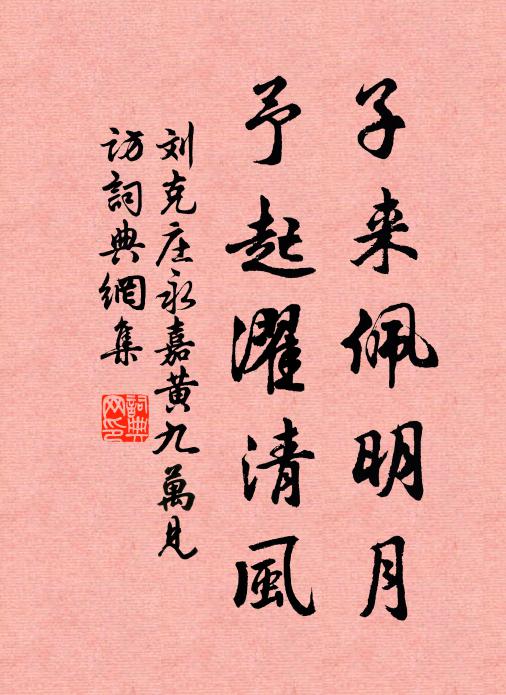 子来佩明月
予起濯清風
刘克庄永嘉黄九萬見
访詞典網集
詞典
网印